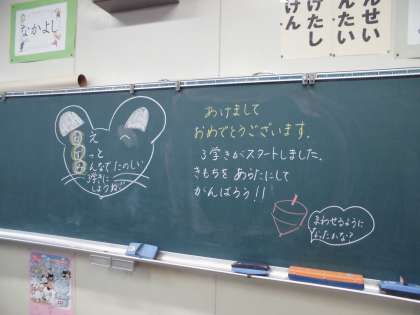 なかよし
ねえ
ずっと
みんなでたのしい
3学きに
しようね!!
あけまして
おめでとうございます。
3学きがスタートしました。
きもちを あらたにして
がんばろう!!
まわせるように
なったかな?